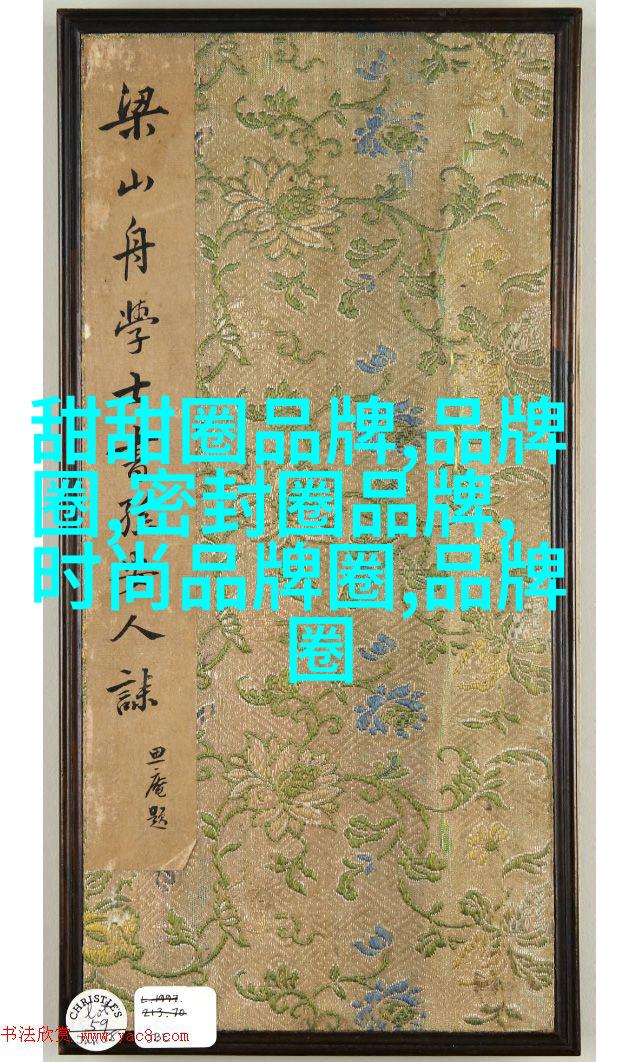 梁山舟學士書孫夫人誄
思庵題
甜甜圈品牌,品牌
圈,密封圈品牌,
时尚品牌圈,品牌
圈
CHRISTIE'S
lot
59
L.1997.
213.70
书法欣赏 www.yac8.com